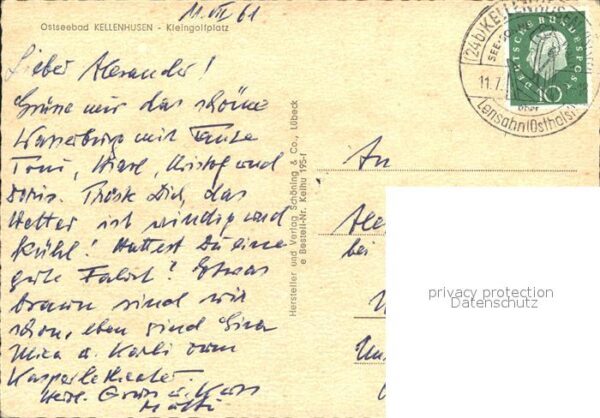 11. VII 61
Ostseebad KELLENHUSEN - Kleingolfplatz
Lieber Alexander!
Grüsse mir das schöne
Wasserburg mit Tante
Toni, Kristof und
Doris. Tröste Dich, das
Wetter ist windig und
kühl! Hattest Du eine
gute Fahrt? Etwas
braun sind wir
schon, eben sind
u. Karli vom
Kasperletheater.
Herzl. Gruss u. Kuss
Mutti
Hersteller und Verlag Schöning & Co., Lübeck
e Bestell-Nr. Kelhu 195-f
(24b) KELLENHUSEN
11.7.
über
Lensahn (Osthol
DEUTSCHE BUNDESPOST
10
An
bei
privacy protection
Datenschutz